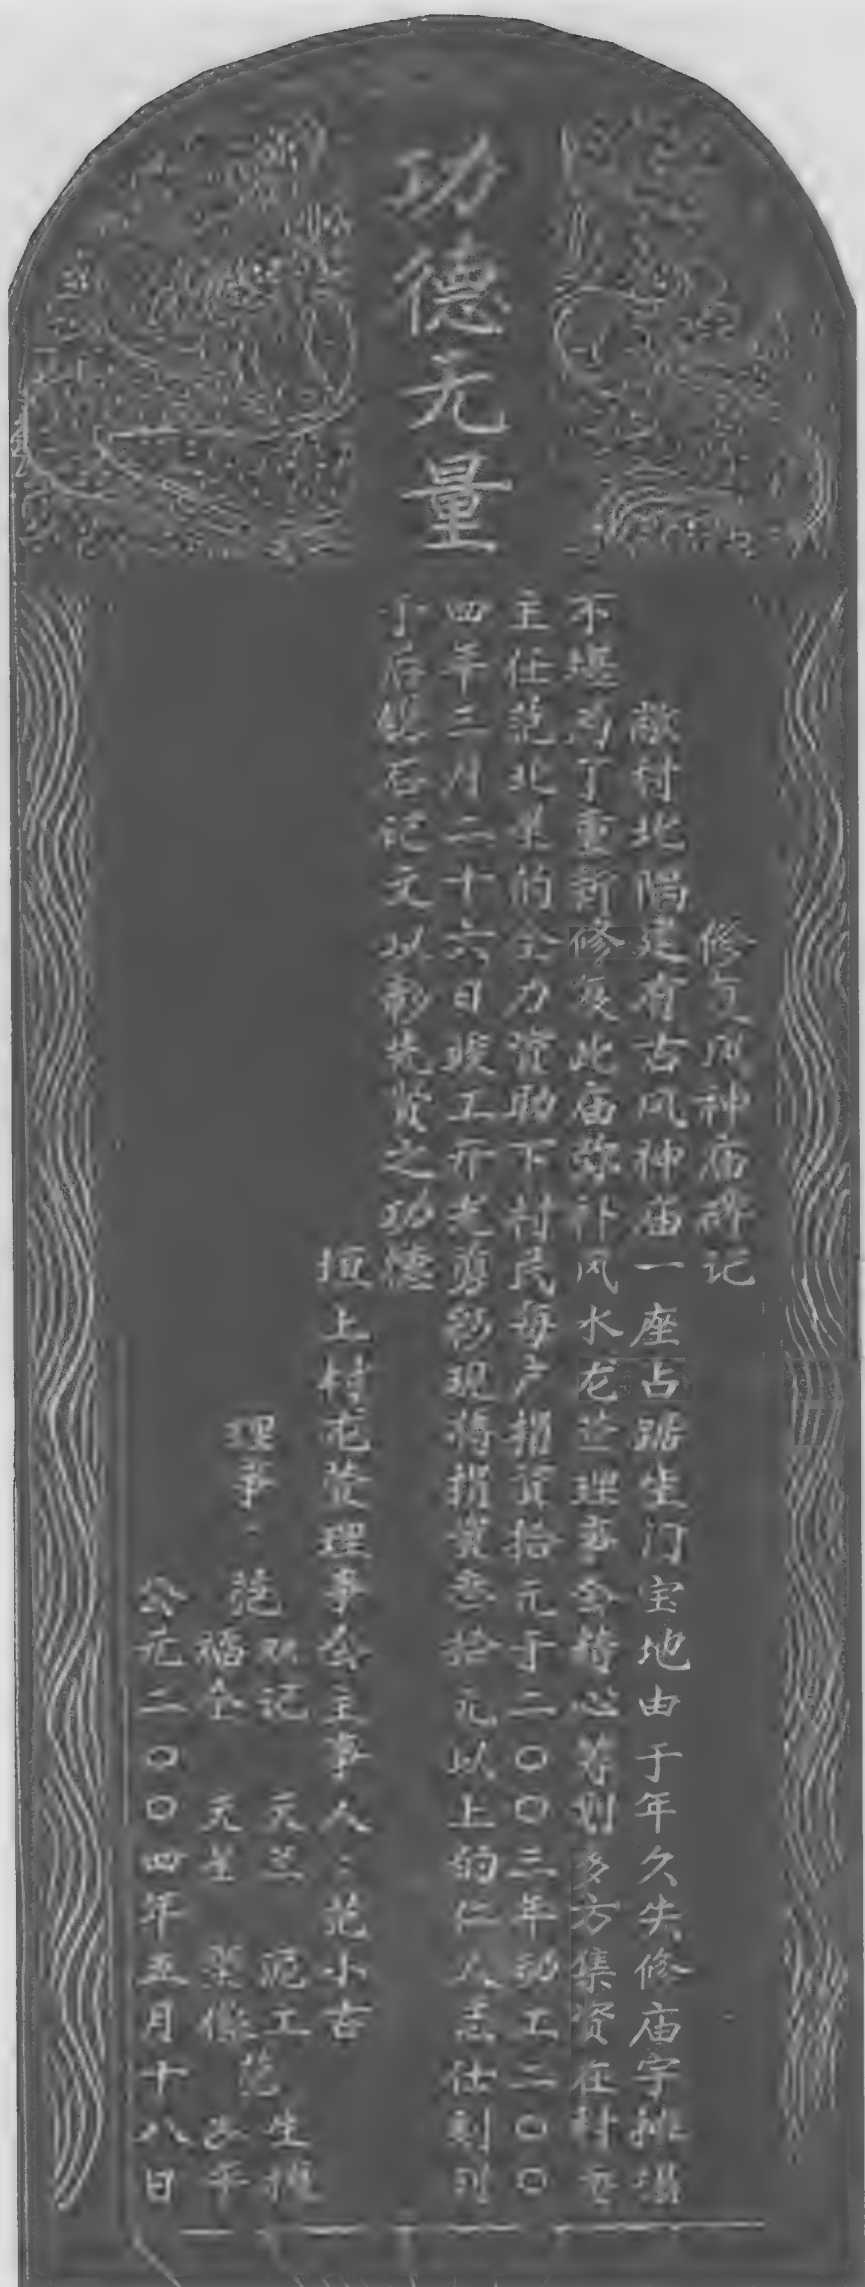 功德无量
修复风神庙碑记
敝村北隅建有古风神庙一座占踞生门宝地由于年久失修庙宇排塌
不堪为了重新修复此庙弥补风水龙莊理事会精心筹划多方集资在村委
主任范北的全力资助下村民每户捐资拾元于二〇〇三年动工二〇〇
四年三月二十六日竣工开光剪彩现将捐资叁拾元以上的仁人志仕刻列
于后镌石记文以彰先贤之功德
垣上村龙莊理事会主事人：范小古
理事：范
记 天兰 范工 生
福全 天星 平
公元二〇〇四年五月十八日